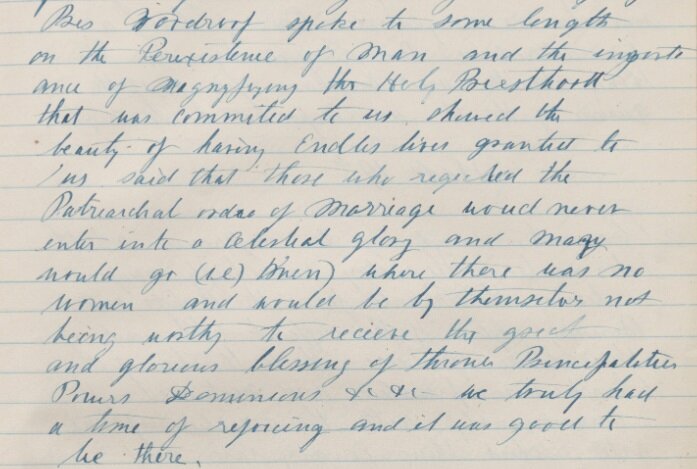 Pres Woodruf spoke to some length
on the Perexistence of Man and the import
ance of Magnyfying the Holy Priesthood
that was commited to us. shewed the
beauty of having Endles lives granted to
us. said that those who regected the
Patriarchal order of Marriage would never
enter into a Celestial glory and many
would go (i.e) (Men) where there was no
women and would be by themselves not
being worthy to recieve the great
and glorious blessing of thrones Principalities
Powers Dominions &c &c we truly had
a time of rejoicing and it was good to
be there.